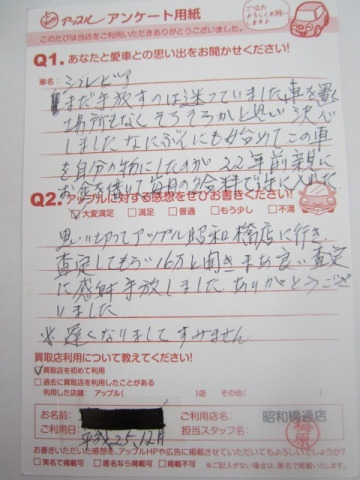 アップル／アンケート用紙
ご協力
よろしくお願い
します！
このたびは当店をご利用いただきありがとうございました。
Q1. あなたと愛車との思い出をお聞かせください！
車名：シルビア
まだ手放すのは迷っていました車を置く
場所もなくそろそろかと思い決心
しました なにぶんにも始めてこの車
を自分の物にしたのが22年前親に
お金を借りて毎月の給料で手に入れた
Q2. アップルに対する感想をぜひお書きください！
☑大変満足 □満足 □普通 □もう少し □不満
思い切ってアップル昭和橋店に行き
査定してもらい16万と聞きまあ良い査定
に感射手放しました ありがとうござ
いました
※ 遅くなりましてすみません
買取店利用について教えてください！
☑買取店を初めて利用
□過去に買取店を利用したことがある
利用した店舗： アップル（ ）店 その他（ ）
お名前：
ご利用店名： 昭和橋通店
ご利用日： 平成25.12月
担当スタッフ名：
お書きいただいた感想を、アップルHPや広告に掲載させていただいてもよろしいでしょうか？
□実名で掲載可 □匿名なら掲載可 □掲載不可
※ご記入がない場合は、匿名で掲載いたします。